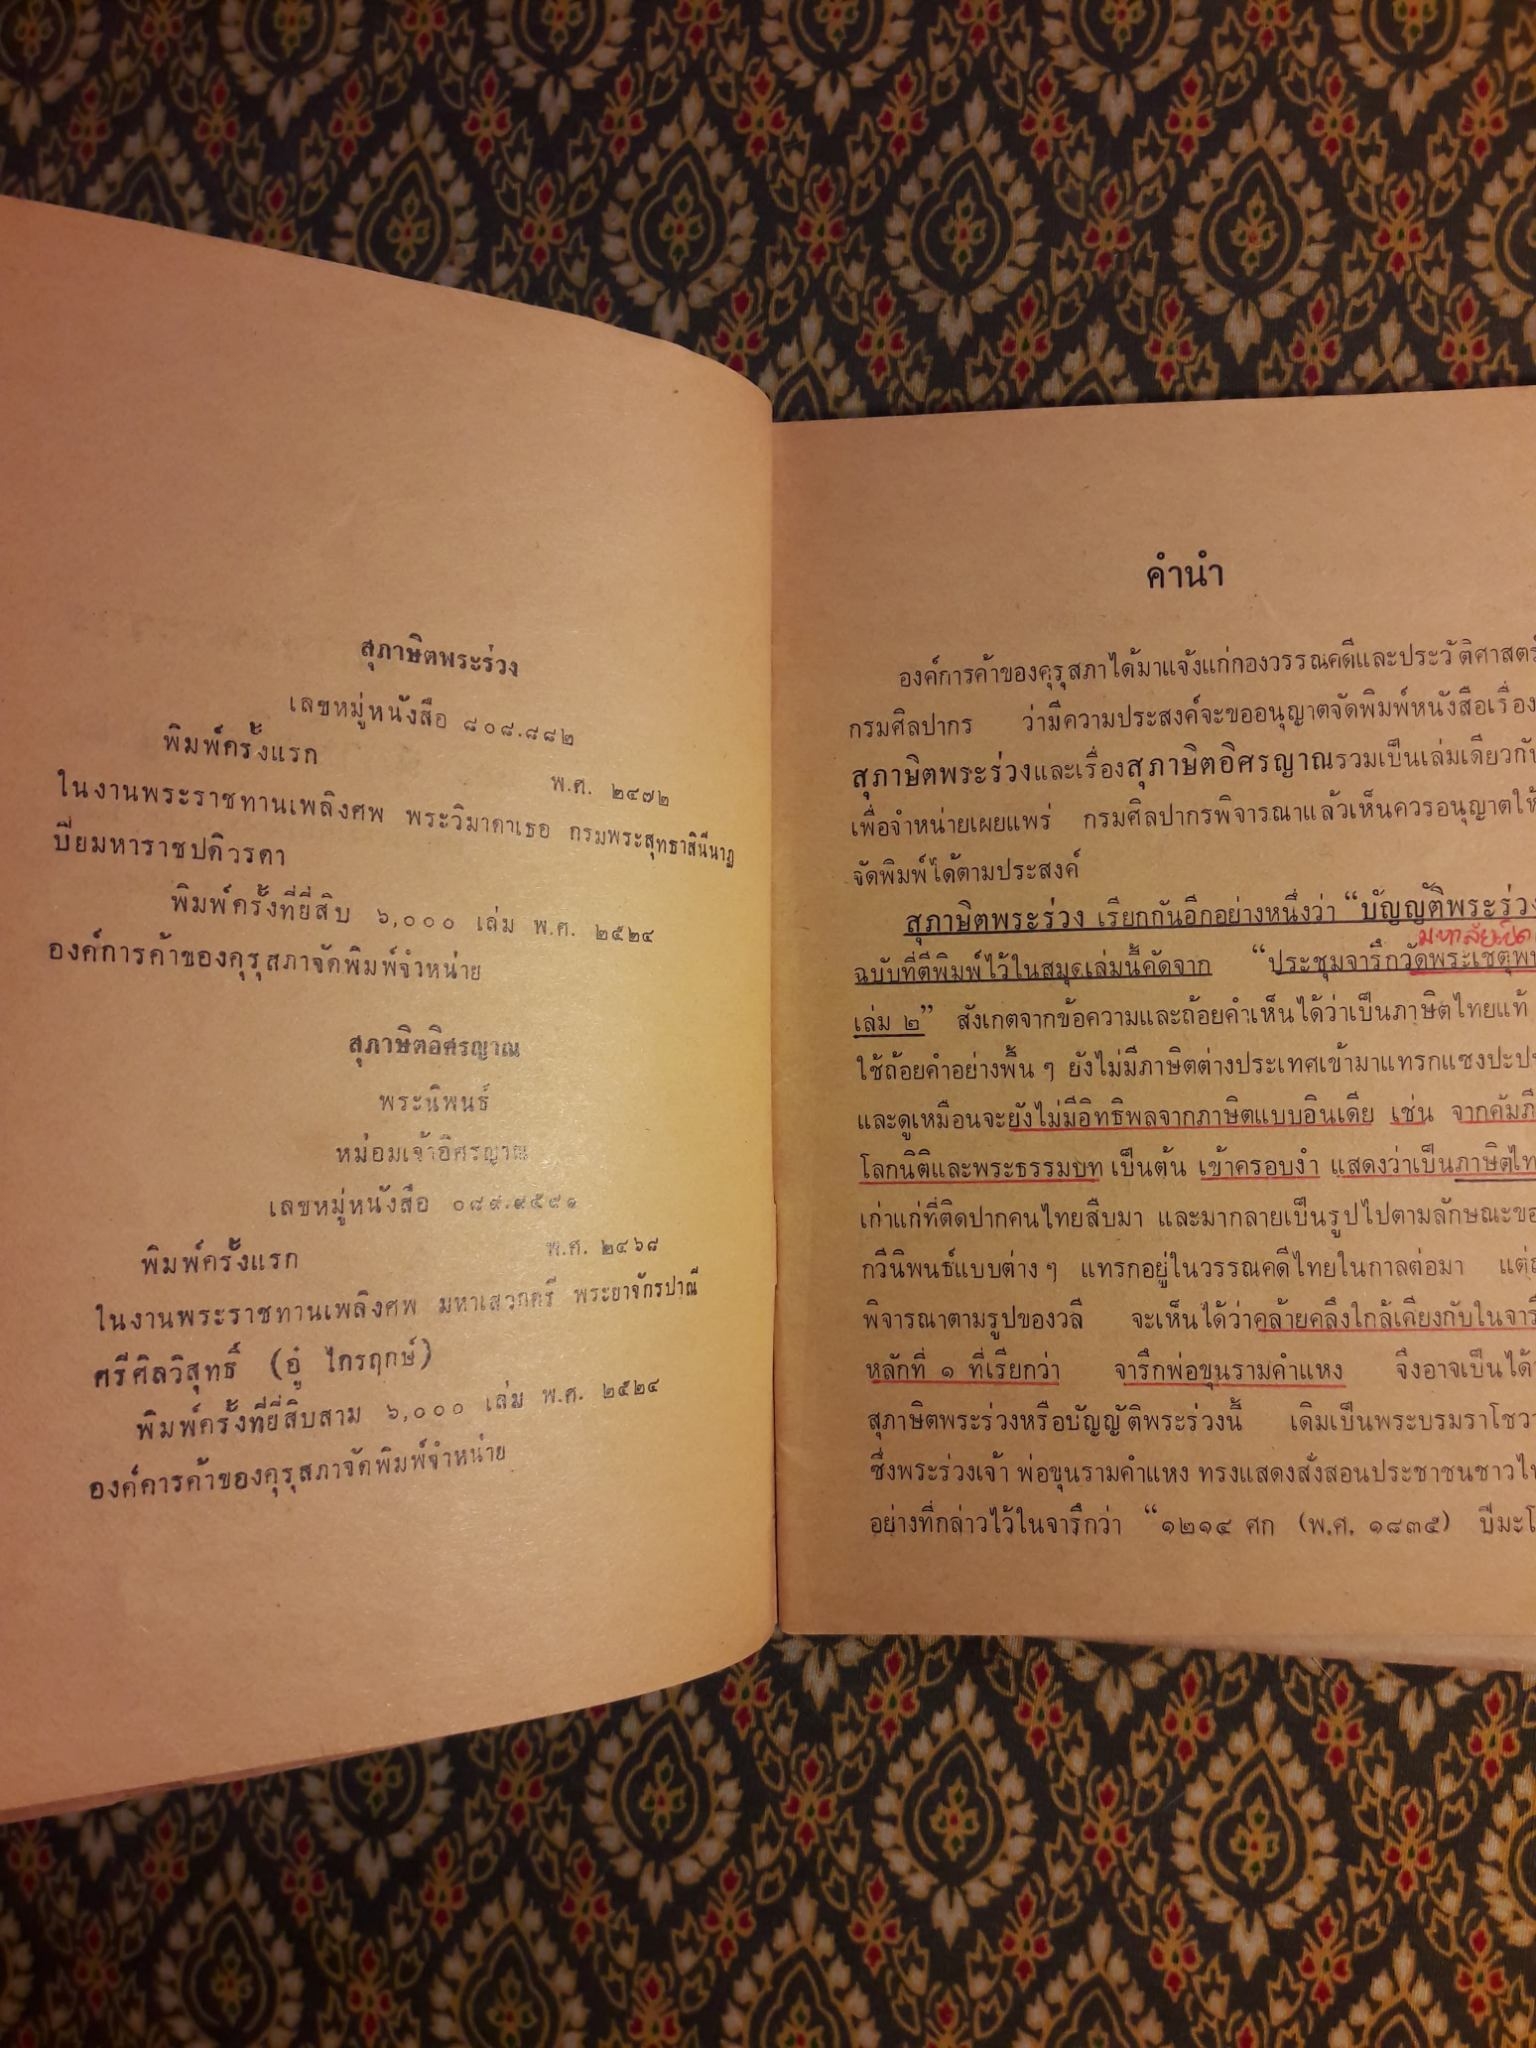 สุภาษิตพระร่วง
เลขหมู่หนังสือ ๘๐๘.๘๘๒
พิมพ์ครั้งแรก พ.ศ. ๒๔๗๒
ในงานพระราชทานเพลิงศพ พระวิมาดาเธอ กรมพระสุทธาสินีนาฏ
ปิยมหาราชปดิวรดา
พิมพ์ครั้งที่ยี่สิบ ๖,๐๐๐ เล่ม พ.ศ. ๒๕๒๔
องค์การค้าของคุรุสภาจัดพิมพ์จำหน่าย
สุภาษิตอิศรญาณ
พระนิพนธ์
หม่อมเจ้าอิศรญาณ
เลขหมู่หนังสือ ๐๘๙.๙๕๙๑
พิมพ์ครั้งแรก พ.ศ. ๒๔๖๘
ในงานพระราชทานเพลิงศพ มหาเสวกตรี พระยาจักรปาณี
ศรีศิลวิสุทธิ์ (อู๋ ไกรฤกษ์)
พิมพ์ครั้งที่ยี่สิบสาม ๖,๐๐๐ เล่ม พ.ศ. ๒๕๒๔
องค์การค้าของคุรุสภาจัดพิมพ์จำหน่าย
คำนำ
องค์การค้าของคุรุสภาได้มาแจ้งแก่กองวรรณคดีและประวัติศาสตร์
กรมศิลปากร ว่ามีความประสงค์จะขออนุญาตจัดพิมพ์หนังสือเรื่อง
สุภาษิตพระร่วงและเรื่องสุภาษิตอิศรญาณรวมเป็นเล่มเดียวกัน
เพื่อจำหน่ายเผยแพร่ กรมศิลปากรพิจารณาแล้วเห็นควรอนุญาตให้
จัดพิมพ์ได้ตามประสงค์
สุภาษิตพระร่วง เรียกกันอีกอย่างหนึ่งว่า “บัญญัติพระร่วง
ฉบับที่ตีพิมพ์ไว้ในสมุดเล่มนี้คัดจาก “ประชุมจารึกวัดพระเชตุพน
เล่ม ๒” สังเกตจากข้อความและถ้อยคำเห็นได้ว่าเป็นภาษิตไทยแท้
ใช้ถ้อยคำอย่างพื้น ๆ ยังไม่มีภาษิตต่างประเทศเข้ามาแทรกแซงปะปน
และดูเหมือนจะยังไม่มีอิทธิพลจากภาษิตแบบอินเดีย เช่น จากคัมภี
โลกนิติและพระธรรมบท เป็นต้น เข้าครอบงำ แสดงว่าเป็นภาษิตไท
เก่าแก่ที่ติดปากคนไทยสืบมา และมากลายเป็นรูปไปตามลักษณะขอ
กวีนิพนธ์แบบต่าง ๆ แทรกอยู่ในวรรณคดีไทยในกาลต่อมา แต่
พิจารณาตามรูปของวลี จะเห็นได้ว่าคล้ายคลึงใกล้เคียงกับในจารึ
หลักที่ ๑ ที่เรียกว่า จารึกพ่อขุนรามคำแหง จึงอาจเป็นได้
สุภาษิตพระร่วงหรือบัญญัติพระร่วงนี้ เดิมเป็นพระบรมราโชวา
ซึ่งพระร่วงเจ้า พ่อขุนรามคำแหง ทรงแสดงสั่งสอนประชาชนชาวไท
อย่างที่กล่าวไว้ในจารึกว่า “๑๒๑๔ ศก (พ.ศ. ๑๘๓๕) ปีมะโ